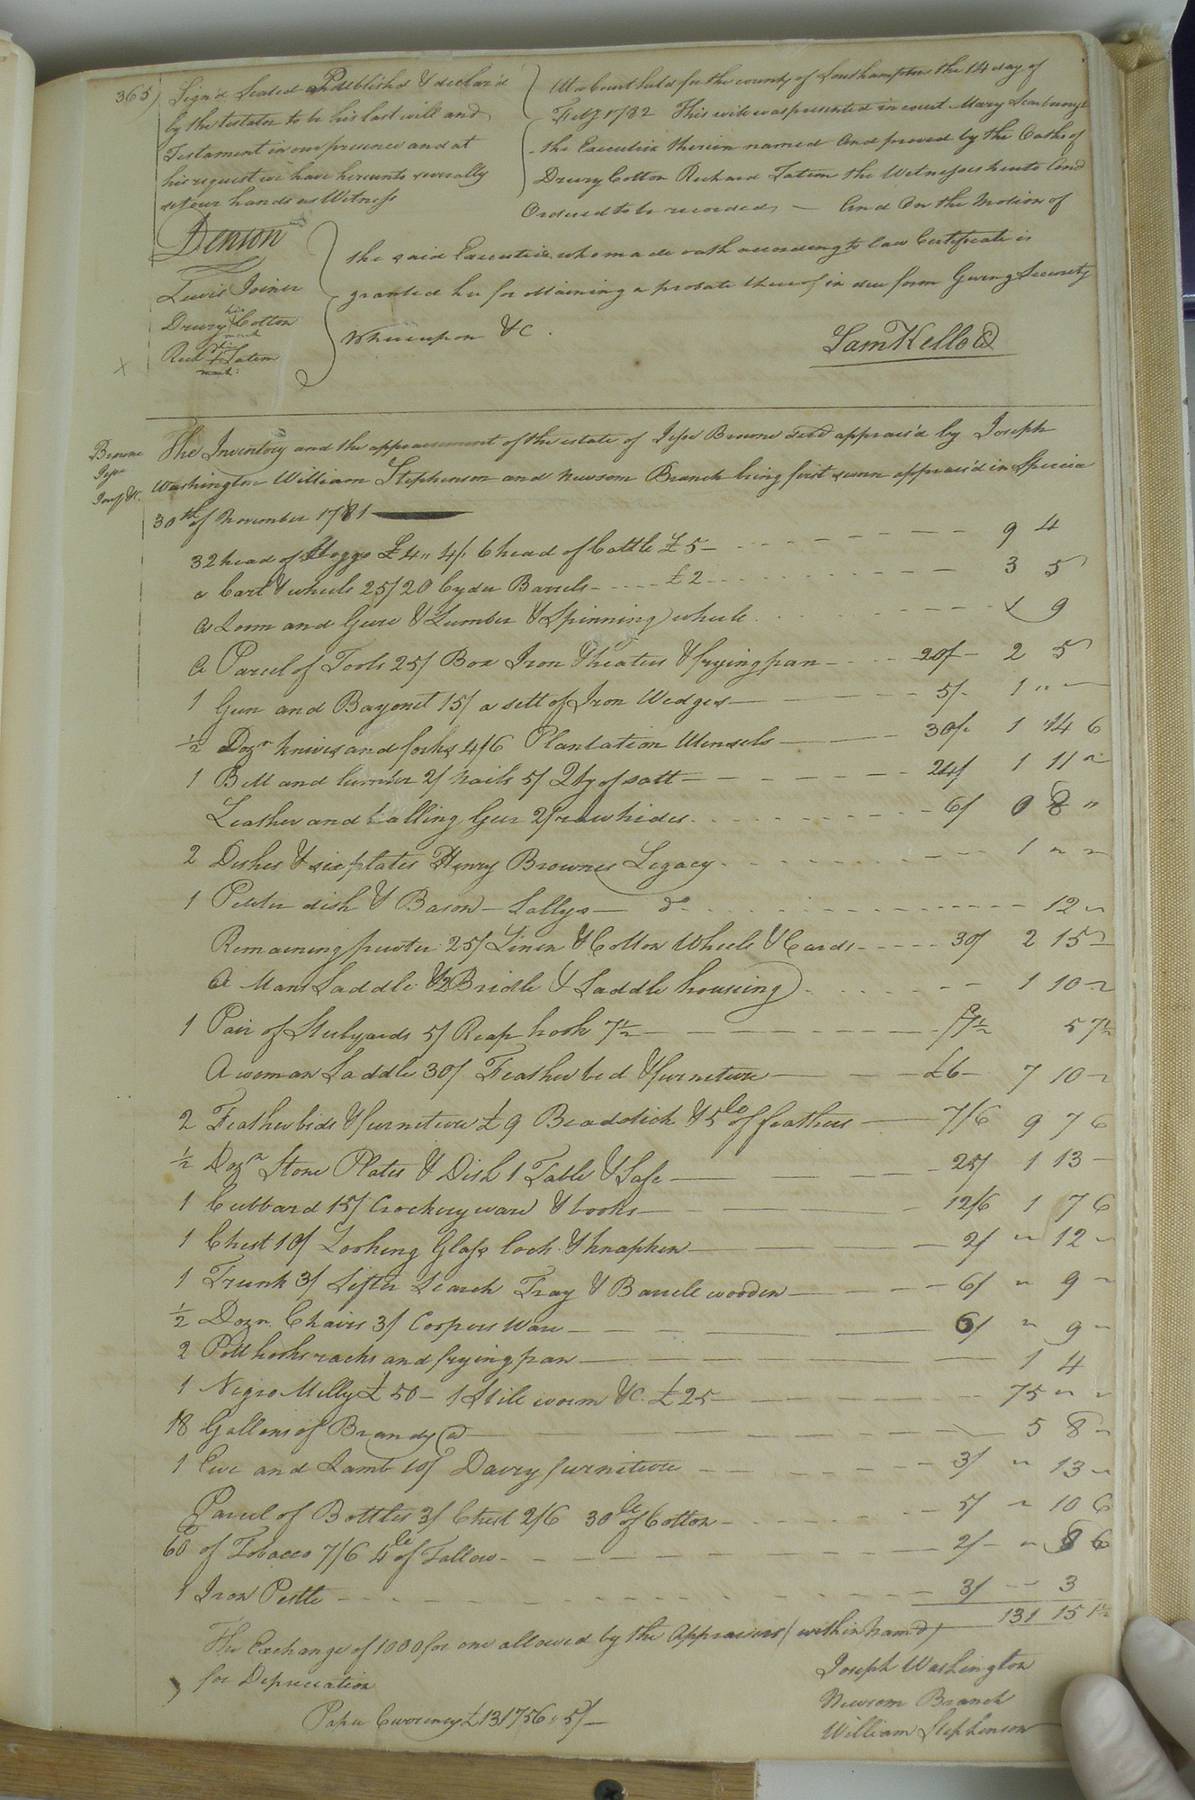 365
Sign'd Sealed Published & declar'd
by the testator to be his last will and
Testament in our presence and at
his request we have hereunto severally
set our hands as Witness
Denson
Lewis Joiner
Drury his mark Cotton
Richd his mark Tatum
At a Court held for the county of Southampton the 14 day of
Feby 1782 This will was presented in court Mary
the Executrix therein named And proved by the Oaths of
Drury Cotton Richard Tatum the Witnesses hereto And
Ordered to be recorded, — And On the Motion of
the said Executrix who made oath according to law Certificate is
granted her for obtaining a probate thereof in due form Giving Security
Whereupon &c.
Sam Kello
Browne
Jesse
Invy &c.
The Inventory and the appraisement of the estate of Jesse Browne decd apprais'd by Joseph
Washington William Stephenson and Newsom Branch being first sworn apprais'd in Specia
30th of November 1781
32 head of Hoggs £4 " 4/. 6 head of Cattle £5 — 9 4
a Cart & wheels 25/ 20 Cyder Barrels — £2 3 5
a Loom and Gere & Lumber & Spinning wheele 9
a Parcel of Tools 25/ Box Iron & heaters & frying pan — 20/ — 2 5
1 Gun and Bayonet 15/ a sett of Iron Wedges — 5/. 1 " —
1/2 Dozn knives and forks 4/6 Plantation Utensels — 30/. 1 14 6
1 Bell and lumber 2/ Nails 5/ Qty of salt — 24/ 1 11 "
Leather and Gear 2/ raw hides — 6/ 0 8 "
2 Dishes & six plates Henry Brownes Legacy 1 " "
1 Pewter dish & Bason — Sallys — do 12 "
Remaining pewter 25/ Linen & Cotton Wheels & Cards — 30/ 2 15 "
A Mans Saddle & 2 Bridle & Saddle housing 1 10 "
1 Pair of Stilyards 5/ Reap hook 7½ — 7½ 5 7½
A woman Saddle 30/ Feather bed & furniture — £6 — 7 10 "
2 Feather beds & furniture £9 Beadstick & 5 lb of feathers — 7/6 9 7 6
1/2 Dozn Stone Plates & Dish 1 Table & Safe — 25/ 1 13 —
1 Cubbard 15/ Crockery ware & books — 12/6 1 7 6
1 Chest 10/ Looking Glass lock & knapken — 2/ " 12 "
1 Trunk 3/ Sifter Search Tray & Barrele wooden — 6/ " 9 "
1/2 Dozn. Chairs 3/ Coopers Ware — 6/ " 9 "
2 Pott hooks racks and frying pan — 1 4
1 Negro Milly £50 — 1 Stile worm &c. £25 — 75 " "
18 Gallons of Brandy @ — 5 8 "
1 Ewe and Lamb 10/ Dairy furniture — 3/ " 13 "
Parcel of Bottles 3/ Chest 2/6 30 lb of Cotton — 5/ " 10 6
60 lb of Tobacco 7/6 4 lb of Tallow — 2/ — " 8 6
1 Iron Pestle — 3/ " 3
131 15 1½
The Exchange of 1000 for one allowed by the Appraisers (within nam'd)
for Depreciation
Paper Currency £131756 " 5/ —
Joseph Washington
Newsom Branch
William Stephenson